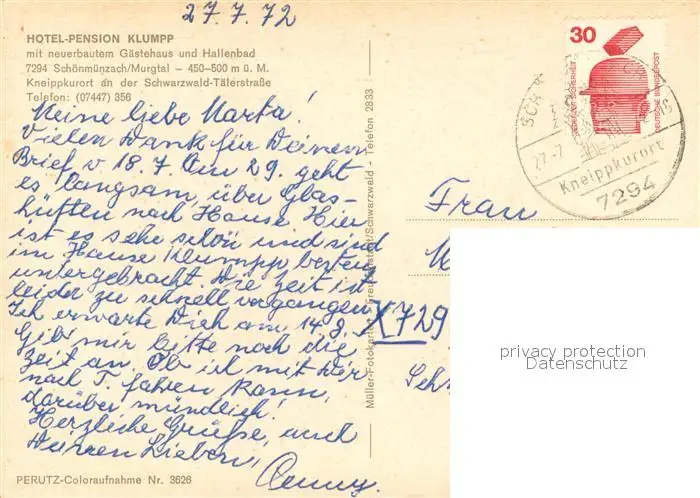 27.7.72
HOTEL-PENSION KLUMPP
mit neuerbautem Gästehaus und Hallenbad
7294 Schönmünzach/Murgtal — 450-500 m ü. M.
Kneippkurort an der Schwarzwald-Tälerstraße
Telefon: (07447) 356
Meine liebe Marta!
Vielen Dank für Deinen
Brief v 18.7. Am 29. geht
es langsam über Glas-
hütten nach Hause Hier
ist es sehr schön und sind
im Hause Klumpp bestens
untergebracht. Die Zeit ist
leider zu schnell vergangen
Ich erwarte Dich am 14.8.
Gib mir bitte noch die
Zeit an. Ob ich mit Dir
nach T. fahren kann,
darüber mündlich!
Herzliche Grüße, auch
Deinen Lieben,
PERUTZ-Coloraufnahme Nr. 3626
Müller-Fotokarten Freudenstadt/Schwarzwald - Telefon 2833
30
DEUTSCHE BUNDESPOST
27.-7
Kneippkurort
7294
Frau
X729
privacy protection
Datenschutz